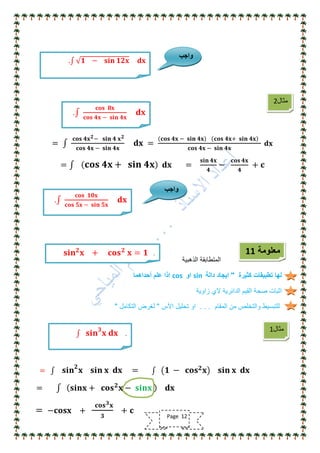 واجب
.∫ √1 − sin 12x dx
مثال2
.∫ cos 8x / cos 4x − sin 4x dx
= ∫ cos 4x² − sin 4 x² / cos 4x − sin 4x dx = (cos 4x − sin 4x) (cos 4x+ sin 4x) / cos 4x − sin 4x dx
= ∫ (cos 4x + sin 4x) dx = sin 4x / 4 − cos 4x / 4 + c
واجب
.∫ cos 10x / cos 5x − sin 5x dx
معلومة 11
sin²x + cos² x = 1 .
المتطابقة الذهبية
لها تطبيقات كثيرة " ايجاد دالة sin او cos اذا علم أحداهما
اثبات صحة القيم الدائرية لاي زاوية
للتبسيط والتخلص من المقام . . . او تحليل الأس " لغرض التكامل "
مثال1
∫ sin³x dx .
= ∫ sin²x sin x dx = ∫ (1 − cos²x) sin x dx
= ∫ (sinx + cos²x − sinx) dx
= −cosx + cos³x / 3 + c
Page 12